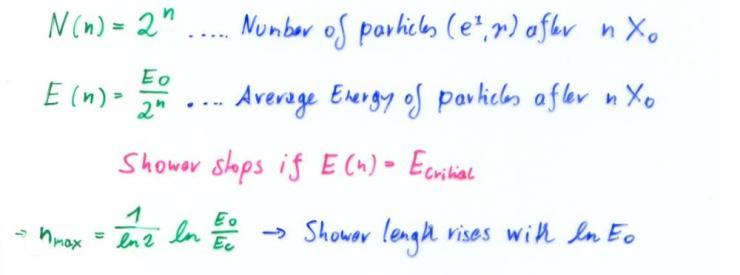 N(n) = 2^n ..... Number of particles (e^±, γ) after n X₀
E(n) = E₀/2^n .... Average Energy of particles after n X₀
Shower stops if E(n) = E_critical
→ n_max = 1/ln2 ln E₀/E_c → Shower length rises with ln E₀